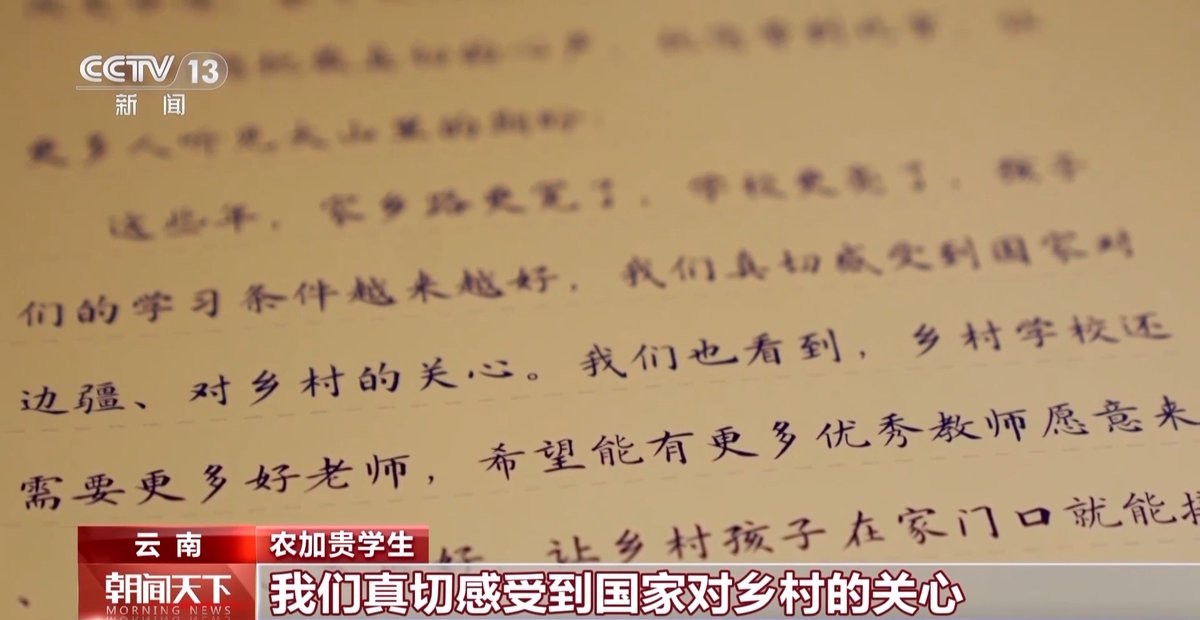 CCTV 13
新闻
更多人听见大山里的期盼。
这些年，家乡路更宽了，学校更美了，孩子
们的学习条件越来越好，我们真切感受到国家对
边疆、对乡村的关心。我们也看到，乡村学校还
需要更多好老师，希望能有更多优秀教师愿意来
好，让乡村孩子在家门口就能接
云南
农加贵学生
朝闻天下
MORNING NEWS
我们真切感受到国家对乡村的关心